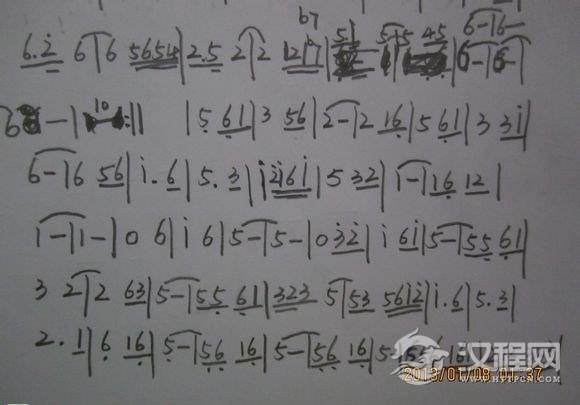 b7
6.2̇ 6 | 6 5654 | 2.5 2 | 2 1217 | 51 5 5 45 6 - | 6 -
6 - | 10 ‖ | 5 61 | 3 56 | 2 - | 2 16 | 5 61 | 3 3i |
6 - | 6 56 | i. 6 | 5. 3 | i2̇16i | 5 32 | 1 - | 16 12 |
i - | i - | 0 6 | i 6 | 5 - | 5 - | 0 3̇2̇ | i 6i | 5 - | 55 61 |
3 2 | 2 63 | 5 - | 55 61 | 323 5 | 53 56i2̇ | i. 6 | 5. 3 |
2. 1 | 6 16 | 5 - | 56 16 | 5 - | 56 16 | 5 -
汉程网
WWW.HTTPCN.COM
2013/01/08 01:37